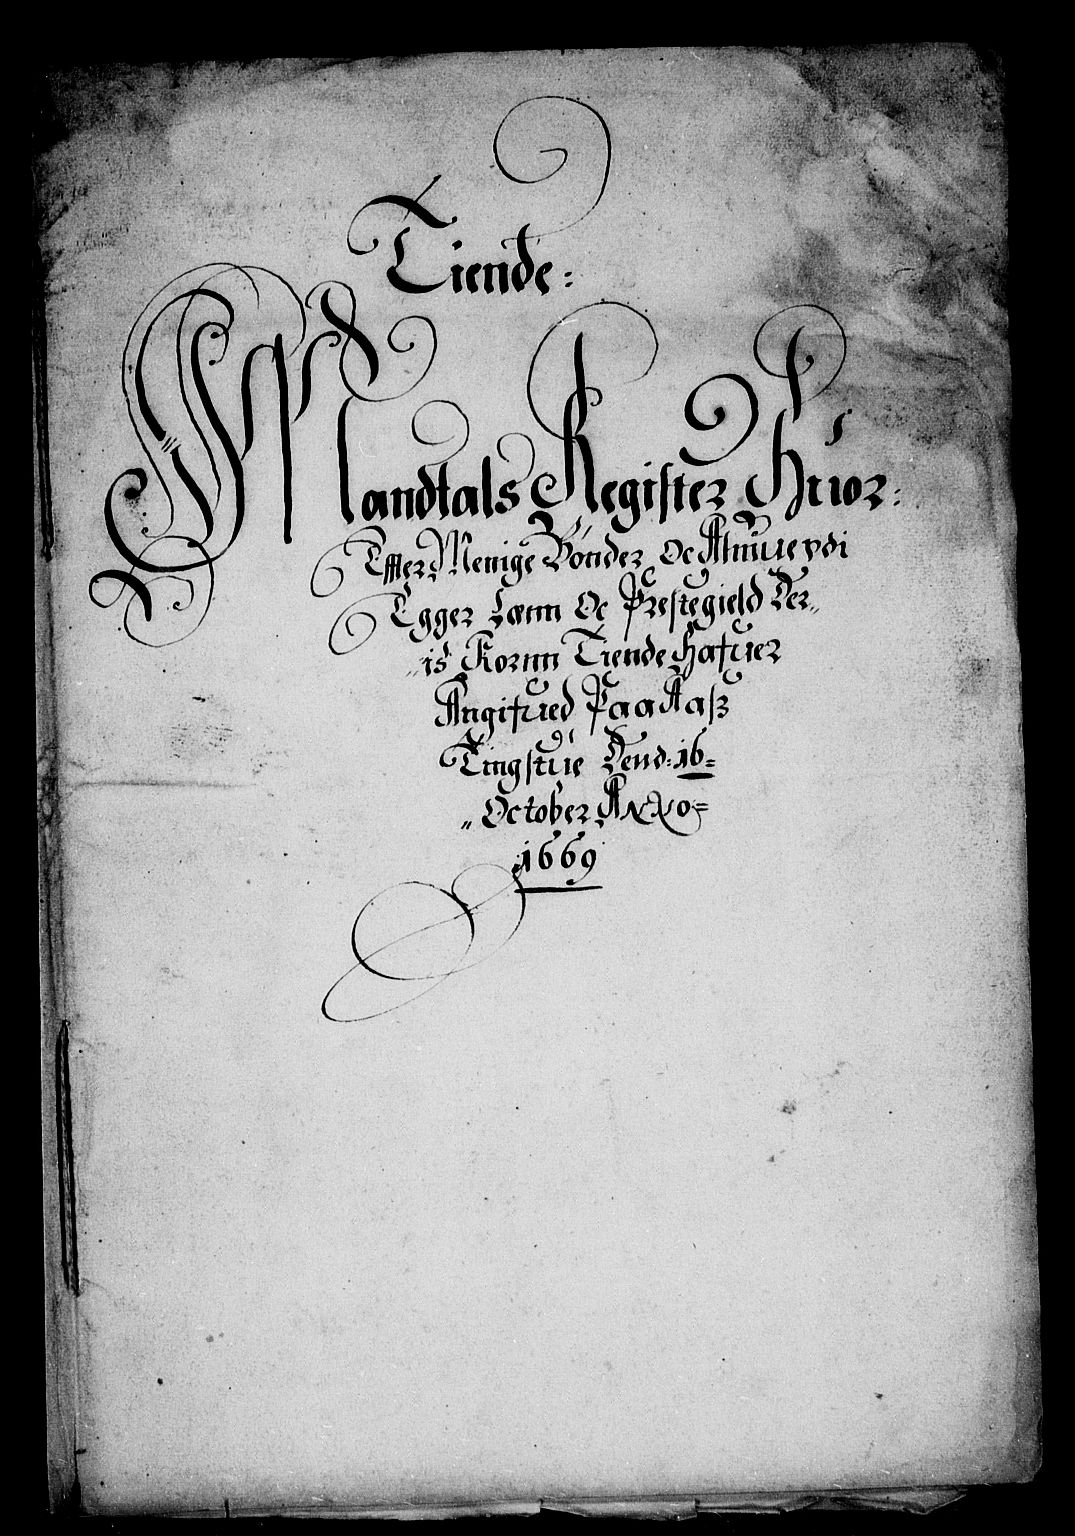 Tiende:
Mandtals Register Huor:
Effter Menige Bönder Oc Almue vdi
Egger Lænn Oc Prestegield Der„
„is Kornn Tiende hafuer
Angifued Paa Aasz
Tingstue Dend: 16=
„October Anno=
1669